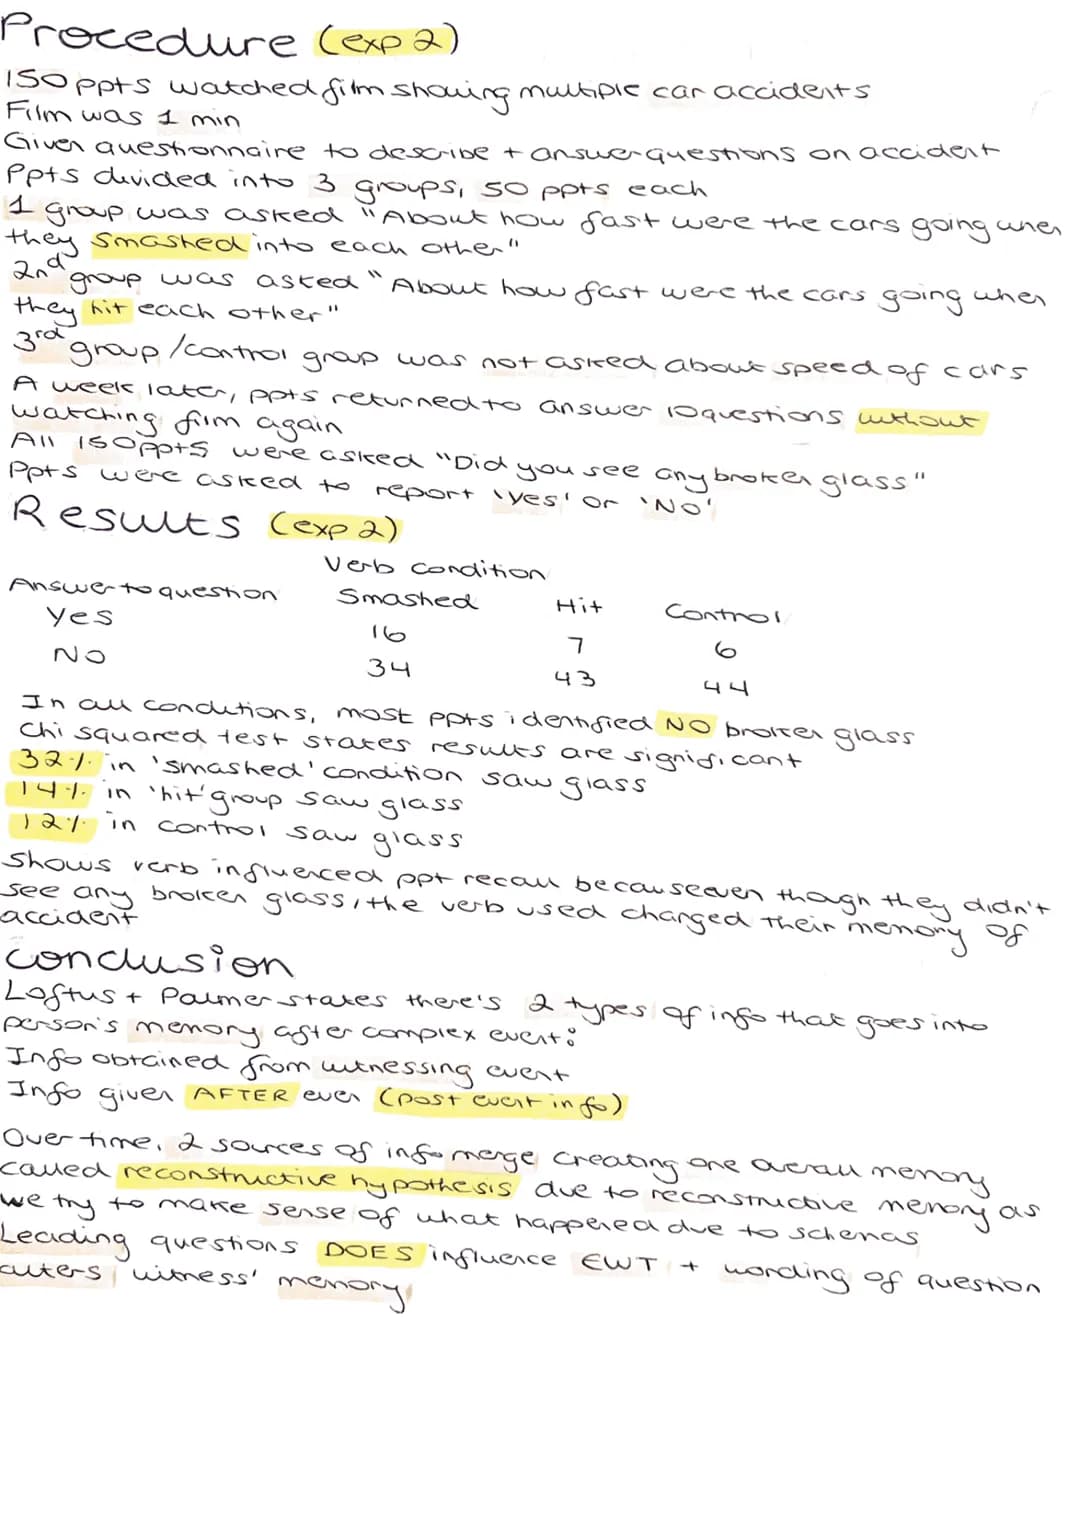 Procedure (exp 2)
150 ppts watched film showing multiple car accidents
Film was 1 min
Given questionnaire to describe + answer questions on accident
Ppts divided into 3 groups, 50 ppts each
1 group was asked "About how fast were the cars going when
they smashed into each other"
2nd group was asked "About how fast were the cars going when
they hit each other"
3rd group/control group was not asked about speed of cars
A week later, ppts returned to answer 10 questions without
watching film again
All 150 ppts were asked "Did you see any broken glass"
Ppts were asked to report 'Yes' or 'No'
Results (exp 2)
Verb condition
Answer to question Smashed Hit Control
Yes 16 7 6
No 34 43 44
In all conditions, most ppts identified NO broken glass
Chi squared test states results are significant
32% in 'smashed' condition saw glass
14% in 'hit' group saw glass
12% in control saw glass
Shows verb influenced ppt recall because even though they didn't
see any broken glass, the verb used changed their memory of
accident
Conclusion
Loftus + Palmer states there's 2 types of info that goes into
person's memory after complex event:
Info obtained from witnessing event
Info given AFTER even (post event info)
Over time, 2 sources of info merge creating one overall memory
called reconstructive hypothesis due to reconstructive memory as
we try to make sense of what happened due to schemas
Leading questions DOES influence EWT + wording of question
alters witness' memory